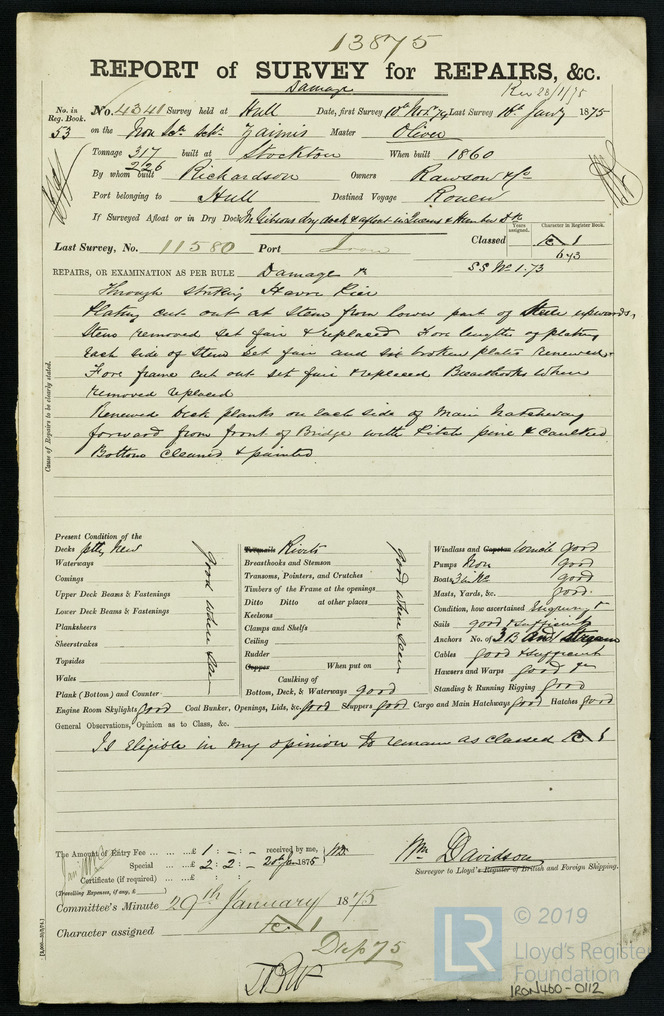 13875
REPORT of SURVEY for REPAIRS, &c.
Damage
Rec 28/1/75
No. in Reg. Book. No. 4340 Survey held at Hull Date, first Survey 10th Novr 74 Last Survey 16th Jany 1875
53 on the Iron Scr Schr Zaimis Master Oliver
Tonnage 317 built at Stockton When built 1860
226
By whom built Richardson Owners Rawson & Co
Port belonging to Hull Destined Voyage Rouen
If Surveyed Afloat or in Dry Dock Mr Gibsons dry dock & afloat in Queens & Humber Dk
Years assigned. Character in Register Book.
Last Survey, No. 11580 Port Iron Classed A 1
6,73
REPAIRS, OR EXAMINATION AS PER RULE Damage SS No 1.73
Cause of Repairs to be clearly stated.
Through striking Havre Pier
Plating cut out at Stem from lower part of upwards,
Stem removed set fair & replaced Fore lengths of plating
each side of Stem set fair and six broken plates renewed.
Fore frame cut out set fair & replaced Breasthooks when
removed replaced
Renewed Deck planks on each side of Main Hatchway
forward from front of Bridge with Pitch pine & Caulked
Bottom cleaned & painted
Present Condition of the
Decks ptly New
Waterways
Comings
Upper Deck Beams & Fastenings
Lower Deck Beams & Fastenings
Planksheers
Sheerstrakes
Topsides
Wales
Plank (Bottom) and Counter
good where seen
Treenails Rivets
Breasthooks and Stemson
Transoms, Pointers, and Crutches
Timbers of the Frame at the openings
Ditto Ditto at other places
Keelsons
Clamps and Shelfs
Ceiling
Rudder
Copper When put on
Caulking of
Bottom, Deck, & Waterways good
good where seen
Windlass and Capstan Winch good
Pumps Iron good
Boats 3 in No good
Masts, Yards, &c. good.
Condition, how ascertained Enquiry
Sails good & sufficient
Anchors No. of 3 B and Stream
Cables good & sufficient
Hawsers and Warps good
Standing & Running Rigging good
Engine Room Skylights good Coal Bunker, Openings, Lids, &c. good Scuppers good Cargo and Main Hatchways good Hatches good
General Observations, Opinion as to Class, &c.
Is Eligible in my opinion to remain as classed A 1
The Amount of Entry Fee ... ... ... £ 1 : - : - received by me, WD
Special ... ... £ 2 : 2 : - 20th Jan 1875
Certificate (if required) ... ... £ : :
(Travelling Expenses, if any, £ )
Wm Davidson
Surveyor to Lloyd's Register of British and Foreign Shipping.
Committee's Minute 29th January 1875
Character assigned A 1
Dep 75
LR
© 2019
Lloyd's Register
Foundation
IRON460-0112